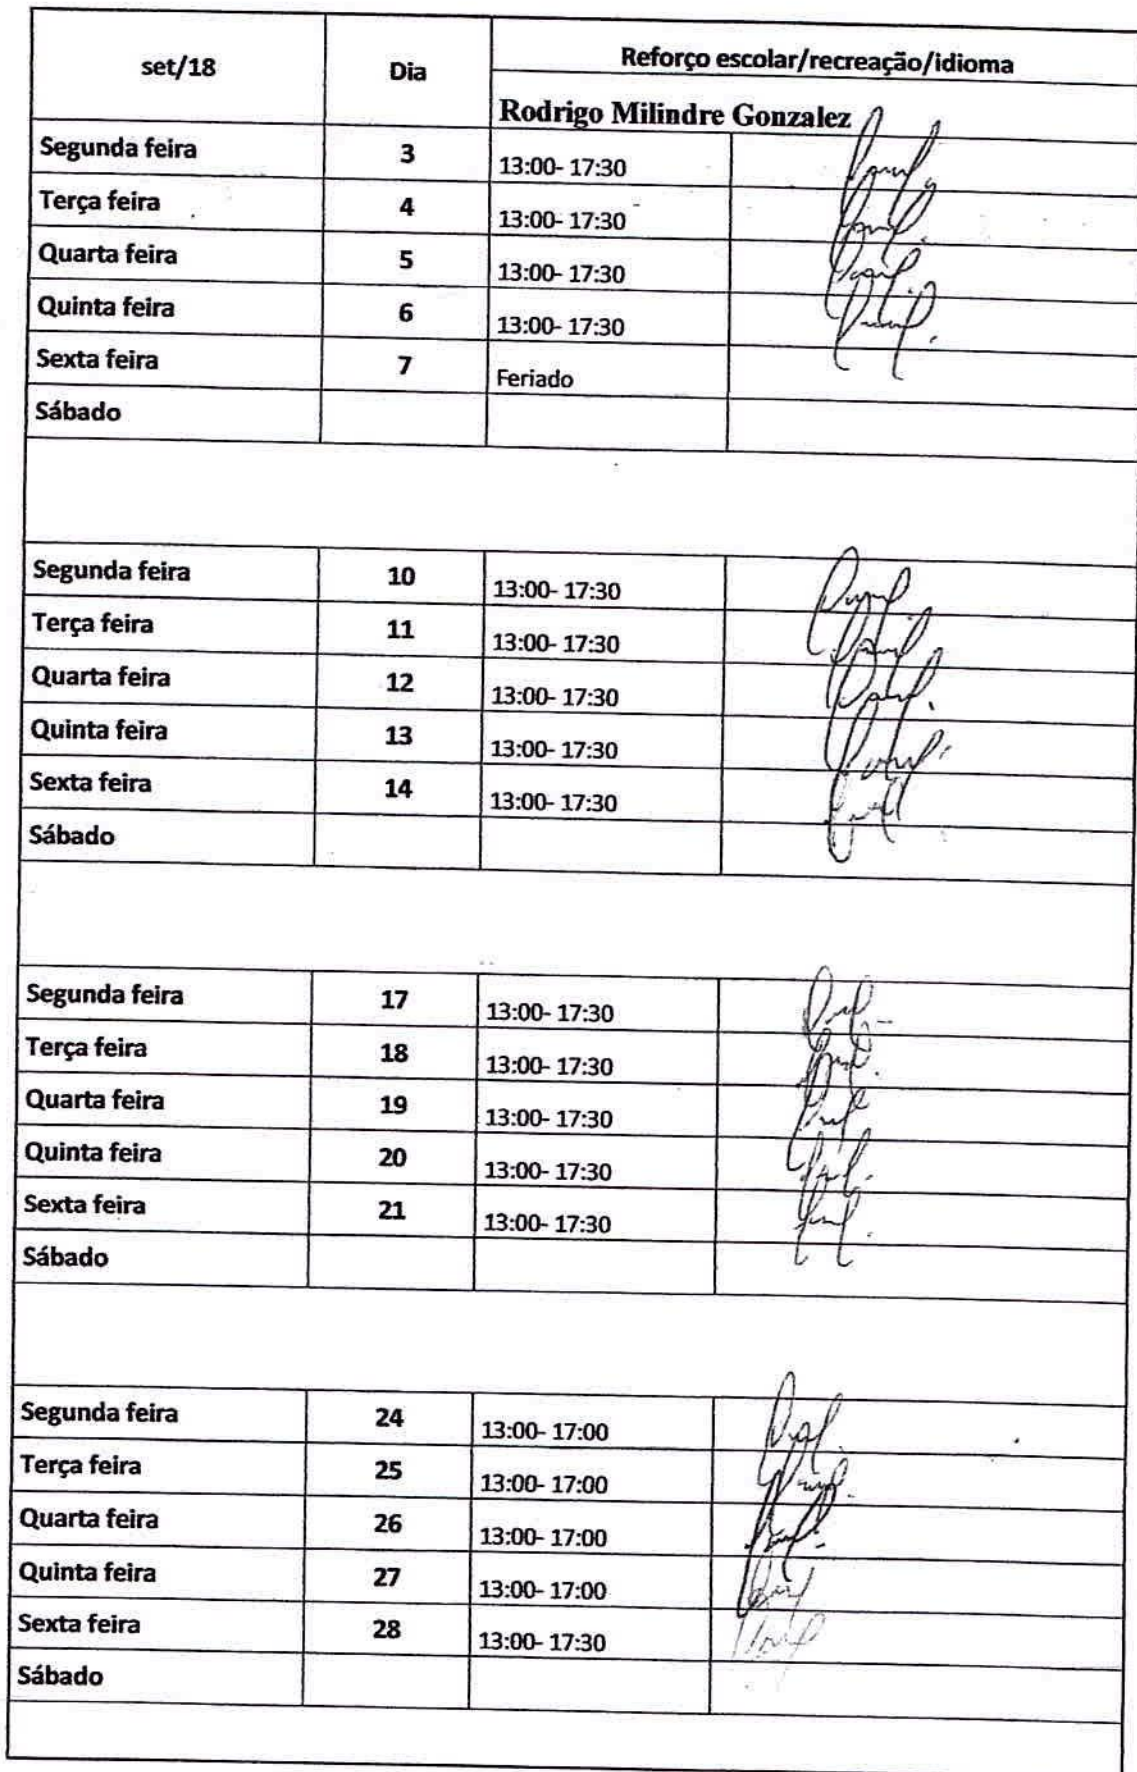 set/18 Dia Reforço escolar/recreação/idioma
Rodrigo Milindre Gonzalez
Segunda feira 3 13:00- 17:30
Terça feira 4 13:00- 17:30
Quarta feira 5 13:00- 17:30
Quinta feira 6 13:00- 17:30
Sexta feira 7 Feriado
Sábado
Segunda feira 10 13:00- 17:30
Terça feira 11 13:00- 17:30
Quarta feira 12 13:00- 17:30
Quinta feira 13 13:00- 17:30
Sexta feira 14 13:00- 17:30
Sábado
Segunda feira 17 13:00- 17:30
Terça feira 18 13:00- 17:30
Quarta feira 19 13:00- 17:30
Quinta feira 20 13:00- 17:30
Sexta feira 21 13:00- 17:30
Sábado
Segunda feira 24 13:00- 17:00
Terça feira 25 13:00- 17:00
Quarta feira 26 13:00- 17:00
Quinta feira 27 13:00- 17:00
Sexta feira 28 13:00- 17:30
Sábado